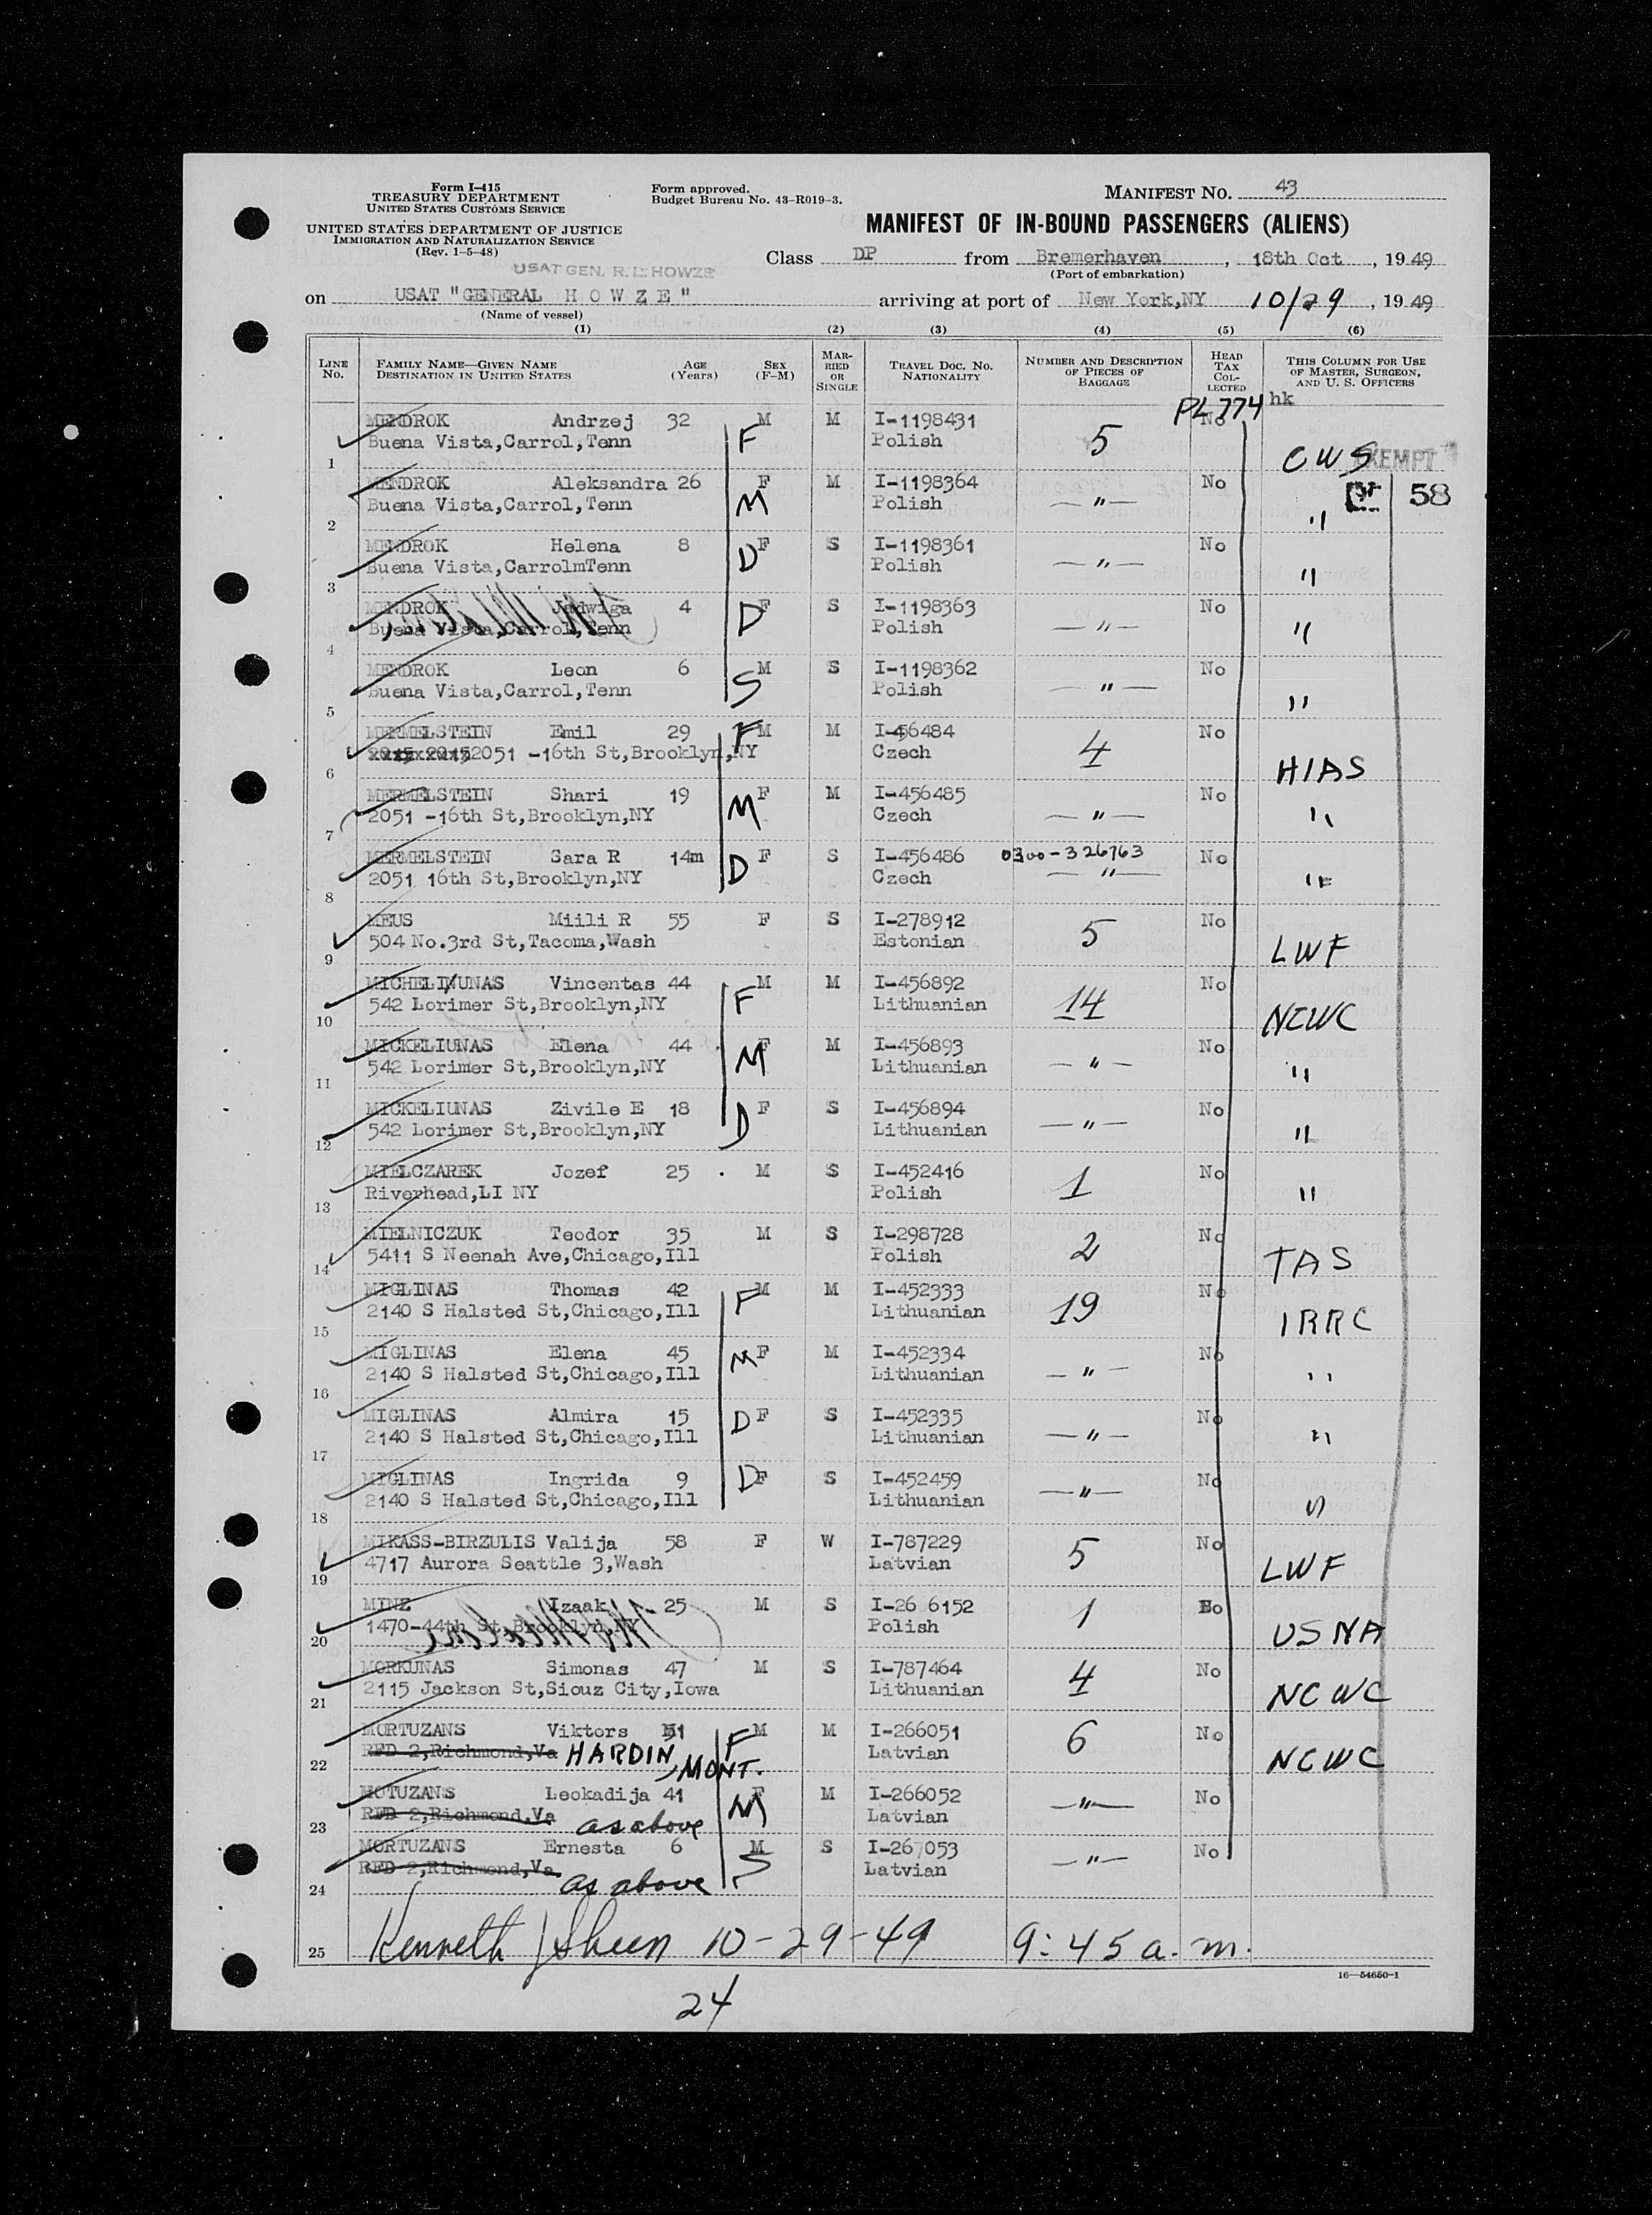 Form I-415
TREASURY DEPARTMENT
UNITED STATES CUSTOMS SERVICE
UNITED STATES DEPARTMENT OF JUSTICE
IMMIGRATION AND NATURALIZATION SERVICE
(Rev. 1-5-48)
Form approved.
Budget Bureau No. 43-R019-3.
MANIFEST NO. 43
MANIFEST OF IN-BOUND PASSENGERS (ALIENS)
Class DP from Bremerhaven, 18th Oct, 1949
(Port of embarkation)
USAT GEN. R.L. HOWZE
on USAT "GENERAL H O W Z E" arriving at port of New York,NY 10/29, 1949
(Name of vessel)
(1) (2) (3) (4) (5) (6)
LINE NO. FAMILY NAME—GIVEN NAME DESTINATION IN UNITED STATES AGE (Years) SEX (F-M) MAR-RIED OR SINGLE TRAVEL DOC. NO. NATIONALITY NUMBER AND DESCRIPTION OF PIECES OF BAGGAGE HEAD TAX COL-LECTED THIS COLUMN FOR USE OF MASTER, SURGEON, AND U. S. OFFICERS
PL 774 hk
MENDROK Andrzej 32 M M I-1198431 No
Buena Vista,Carrol,Tenn F Polish 5 CWS EXEMPT
1
MENDROK Aleksandra 26 F M I-1198364 No 58
Buena Vista,Carrol,Tenn M Polish — " — "
2
MENDROK Helena 8 F S I-1198361 No
Buena Vista,CarrolmTenn D Polish — " — "
3
MENDROK Jadwiga 4 F S I-1198363 No
Buena Vista,Carrol,Tenn D Polish — " — "
4
MENDROK Leon 6 M S I-1198362 No
Buena Vista,Carrol,Tenn S Polish — " — "
5
MERMELSTEIN Emil 29 F M M I-456484 No
2051 -16th St,Brooklyn,NY Czech 4 HIAS
6
MERMELSTEIN Shari 19 F M I-456485 No
2051 -16th St,Brooklyn,NY M Czech — " — "
7
MERMELSTEIN Sara R 14m F S I-456486 0300-326763 No
2051 16th St,Brooklyn,NY D Czech — " — "
8
MEUS Miili R 55 F S I-278912 No
504 No.3rd St,Tacoma,Wash Estonian 5 LWF
9
MICHELINUNAS Vincentas 44 M M I-456892 No
542 Lorimer St,Brooklyn,NY F Lithuanian 14 NCWC
10
MICKELIUNAS Elena 44 F M I-456893 No
542 Lorimer St,Brooklyn,NY M Lithuanian — " — "
11
MICKELIUNAS Zivile E 18 F S I-456894 No
542 Lorimer St,Brooklyn,NY D Lithuanian — " — "
12
MIELCZAREK Jozef 25 M S I-452416 No
Riverhead,LI NY Polish 1 "
13
MIELNICZUK Teodor 35 M S I-298728 No
5411 S Neenah Ave,Chicago,Ill Polish 2 TAS
14
MIGLINAS Thomas 42 M M I-452333 No
2140 S Halsted St,Chicago,Ill F Lithuanian 19 IRRC
15
MIGLINAS Elena 45 F M I-452334 No
2140 S Halsted St,Chicago,Ill M Lithuanian — " — "
16
MIGLINAS Almira 15 D F S I-452335 No
2140 S Halsted St,Chicago,Ill Lithuanian — " — "
17
MIGLINAS Ingrida 9 D F S I-452459 No
2140 S Halsted St,Chicago,Ill Lithuanian — " — "
18
MIKASS-BIRZULIS Valija 58 F W I-787229 No
4717 Aurora Seattle 3,Wash Latvian 5 LWF
19
MINZ Izaak 25 M S I-26 6152 No
1470-44th St,Brooklyn,NY Polish 1 USNA
20
MORKUNAS Simonas 47 M S I-787464 No
2115 Jackson St,Siouz City,Iowa Lithuanian 4 NCWC
21
MORTUZANS Viktors 51 M M I-266051 No
RFD 2,Richmond,Va HARDIN, MONT. F Latvian 6 NCWC
22
MOTUZANS Leokadija 41 F M I-266052 No
RFD 2,Richmond,Va as above M Latvian — " —
23
MORTUZANS Ernesta 6 M S I-267053 No
RFD 2,Richmond,Va as above S Latvian — " —
24
25 Kenneth J Sheen 10-29-49 9:45 a.m.
16—54650-1
24